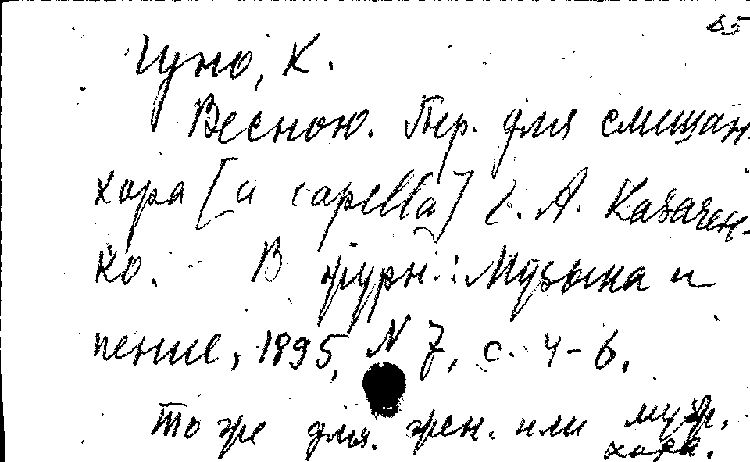 65
Гуно, К.
Весною. Пер. для смешан.
хора [a capella] Г. А. Казачен-
ко. - В журн.: Музыка и
пение, 1895, N 7, с. 4-6.
То же для жен. или муж.
хора.